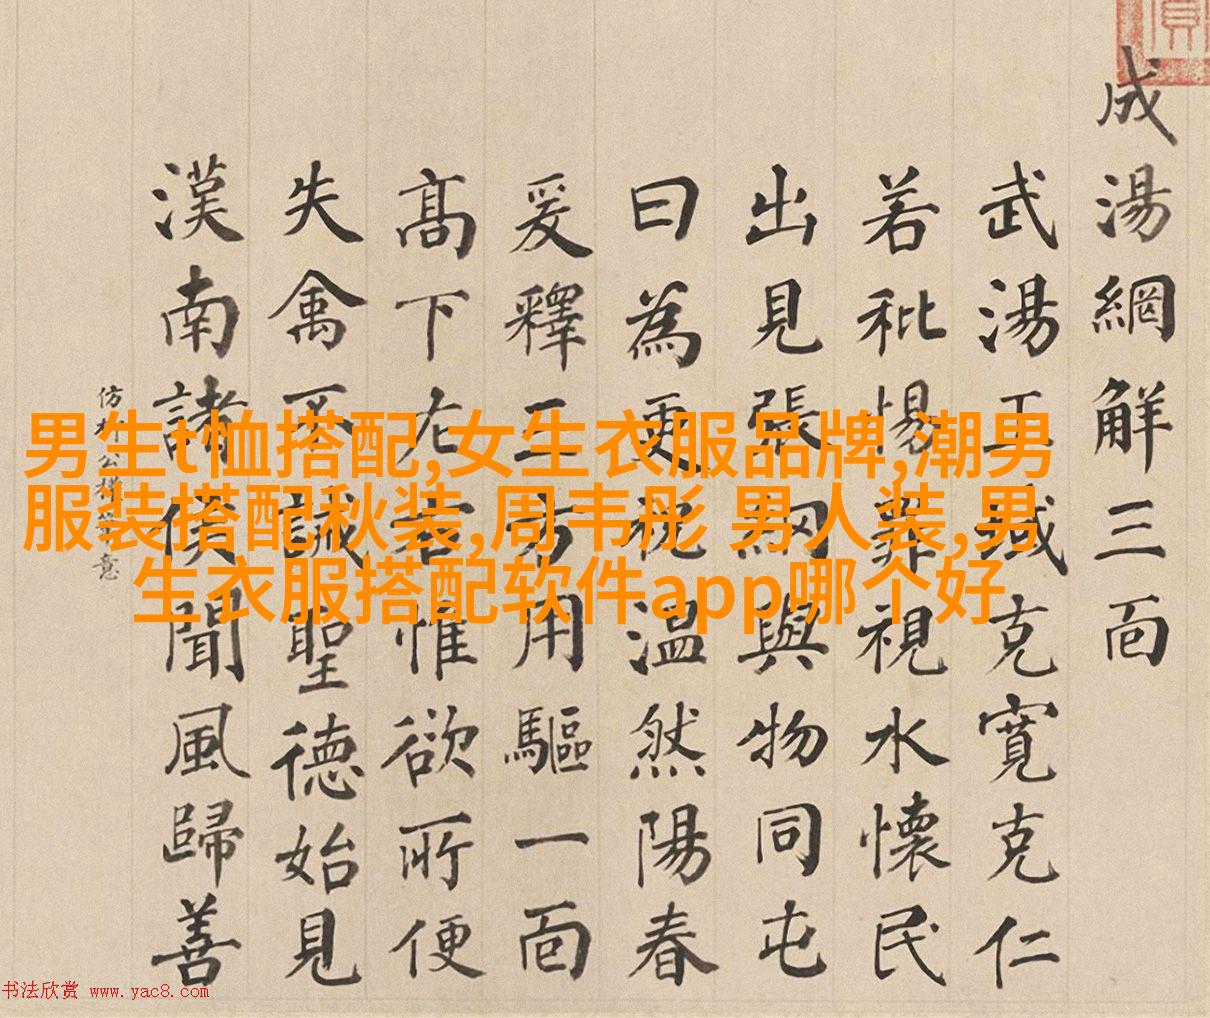 成湯網解三面
武湯域克寬克仁
若秕惕罪視水懷民
出見張網與物同屯
曰為更祝溫然陽春
爰釋三方用驅一面
高下左右惟欲所便
失禽不誡聖德始見
漢南諸侯聞風歸善
仿柳公權筆意
男生t恤搭配,女生衣服品牌,潮男
服装搭配秋装,周韦彤 男人装,男
生衣服搭配软件app哪个好
书法欣赏 www.yac8.com